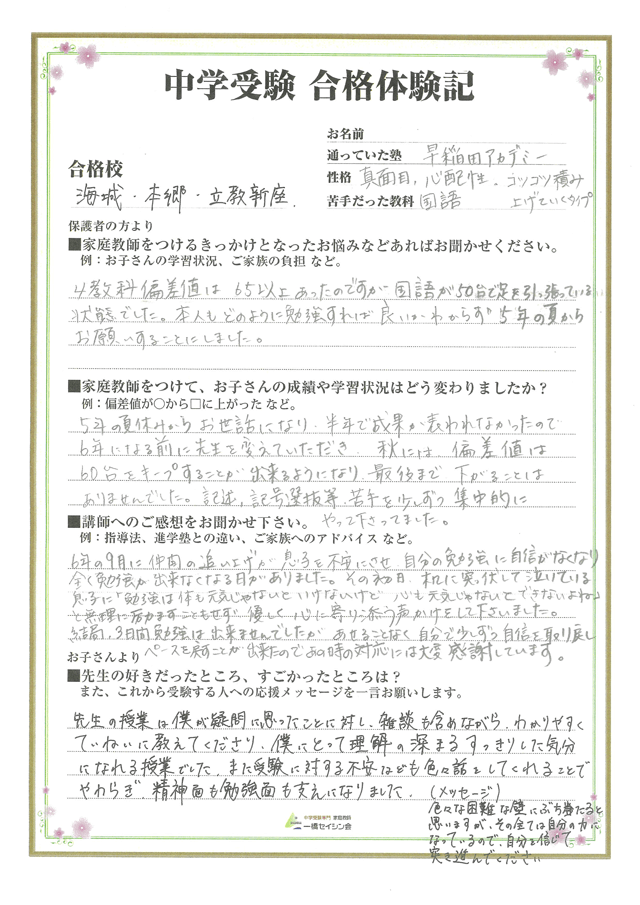 中学受験 合格体験記
お名前
通っていた塾 早稲田アカデミー
合格校
性格 真面目、心配性、コツコツ積み
海城・本郷・立教新座.
苦手だった教科 国語 上げていくタイプ
保護者の方より
■家庭教師をつけるきっかけとなったお悩みなどあればお聞かせください。
例：お子さんの学習状況、ご家族の負担 など。
4教科偏差値は65以上あったのですが国語が50台で足を引っ張っている
状態でした。本人もどのように勉強すれば良いかわからず5年の夏から
お願いすることにしました。
■家庭教師をつけて、お子さんの成績や学習状況はどう変わりましたか？
例：偏差値が○から□に上がった など。
5年の夏休みからお世話になり、半年で成果が表われなかったので
6年になる前に先生を変えていただき、秋には、偏差値は
60台をキープすることが出来るようになり、最後まで下がることは
ありませんでした。記述、記号選抜等、苦手を少しずつ集中的に
■講師へのご感想をお聞かせ下さい。 やって下さってました。
例：指導法、進学塾との違い、ご家族へのアドバイス など。
6年の9月に仲間の追い上げが息子を不安にさせ自分の勉強に自信がなくなり
全く勉強が出来なくなる日がありました。その初日、机に突伏して泣いている
息子に「勉強は体も元気じゃないといけないけど、心も元気じゃないとできないよね」
と無理に励ますこともせず、優しく心に寄り添う声かけをして下さいました。
結局、3日間勉強は出来ませんでしたが、あせることなく自分で少しずつ自信を取り戻し
お子さんより ペースを戻すことが出来たのであの時の対応には大変感謝しています。
■先生の好きだったところ、すごかったところは？
また、これから受験する人への応援メッセージを一言お願いします。
先生の授業は僕が疑問に思ったことに対し、雑談も含めながら、わかりやすく
ていねいに教えてくださり、僕にとって理解の深まるすっきりした気分
になれる授業でした。また受験に対する不安なども色々話をしてくれることで
やわらぎ、精神面も勉強面も支えになりました。(メッセージ)
色々な困難な壁にぶち当たると
思いますが、その全ては自分の力に
なっているので、自分を信じて
突き進んでください
中学受験専門 家庭教師
一橋セイシン会